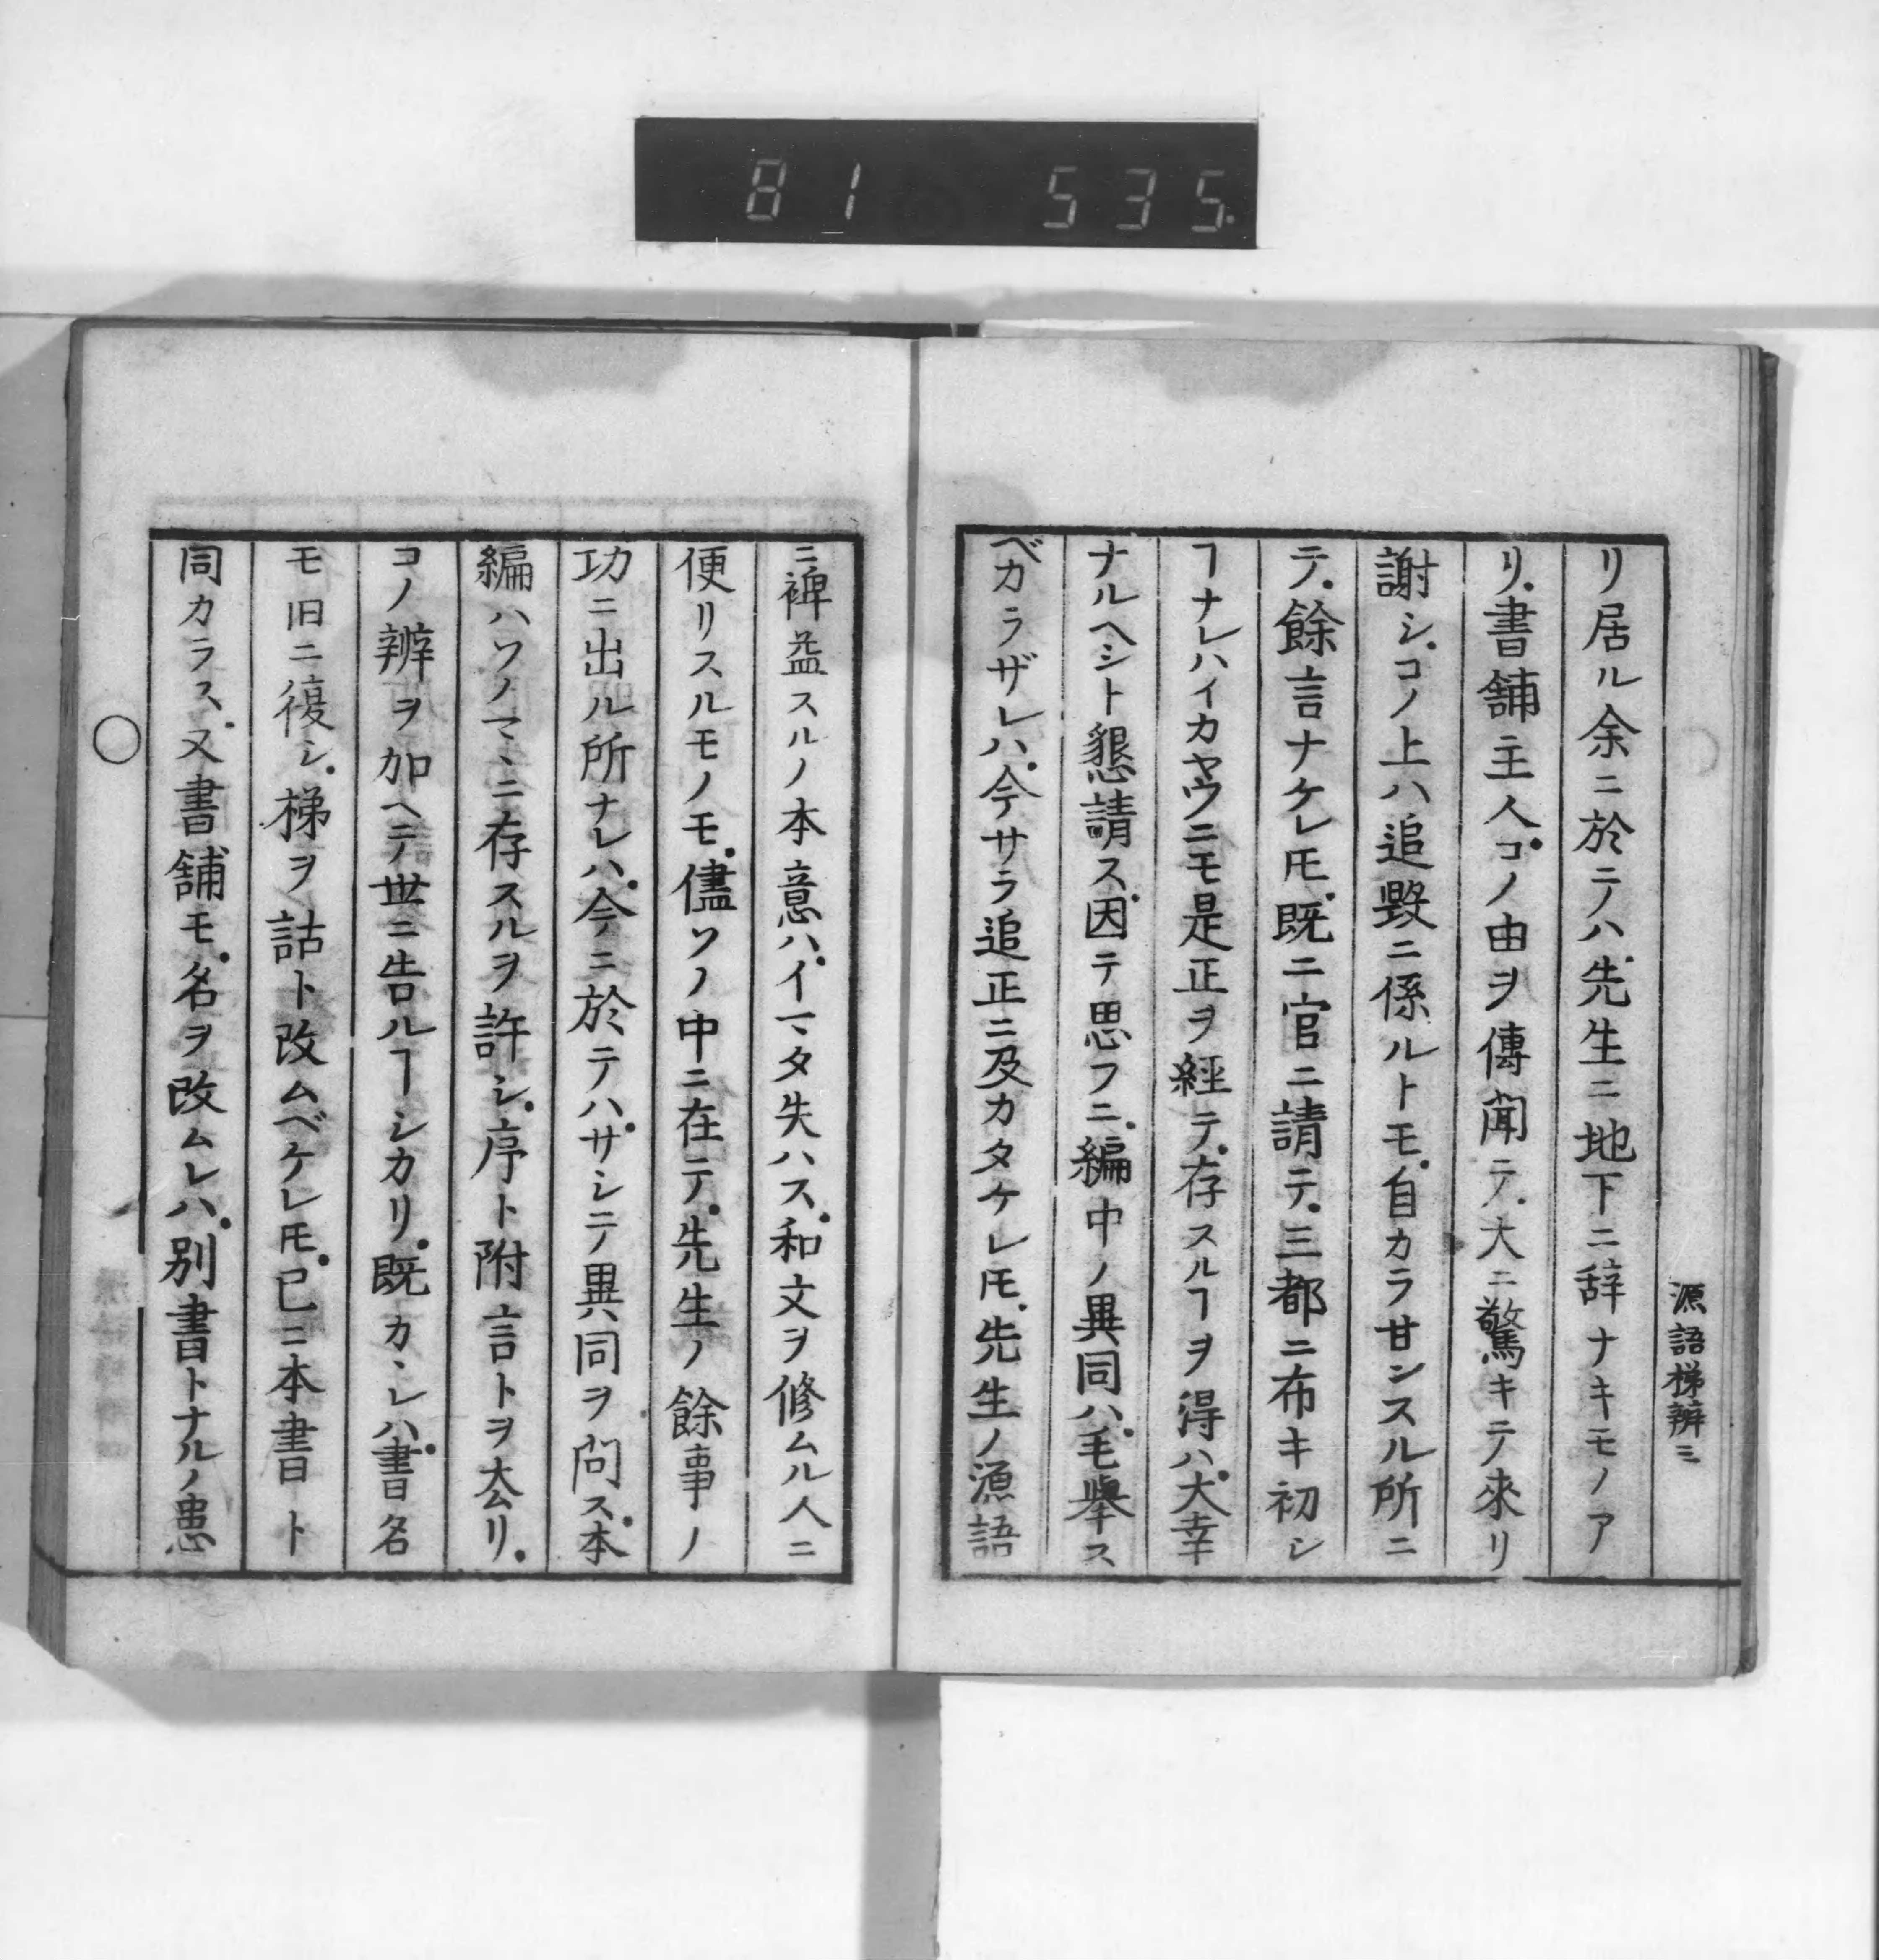 81 535.
源語梯辨三
リ居ル余ニ於テハ先生ニ地下ニ辞ナキモノア
リ。書舗主人コノ由ヲ傳聞テ。大ニ驚キテ來リ
謝シ。コノ上ハ追毀ニ係ルトモ。自カラ甘ンスル所ニ
テ。餘言ナケレ𪜈。既ニ官ニ請テ。三都ニ布キ初シ
ヿナレハイカヤウニモ是正ヲ經テ。存スルヿヲ得ハ。大幸
ナルヘシト懇請ス。因テ思フニ。編中ノ異同ハ。毛擧ス
ベカラザレハ。今サラ追正ニ及カタケレ𪜈。先生ノ源語
ニ裨益スルノ本意ハ。イマタ失ハス。和文ヲ修ムル人ニ
便リスルモノモ。儘ソノ中ニ在テ。先生ノ餘事ノ
功ニ出ル所ナレハ。今ニ於テハ。サシテ異同ヲ問ス。本
編ハソノマヽニ存スルヲ許シ。序ト附言トヲ厺リ。
コノ辨ヲ加ヘテ世ニ告ルヿシカリ。既カヽレハ。書名
モ旧ニ復シ。梯ヲ詁ト改ムベケレ𪜈。已ニ本書ト
同カラス。又書舗モ。名ヲ改ムレハ。別書トナルノ患